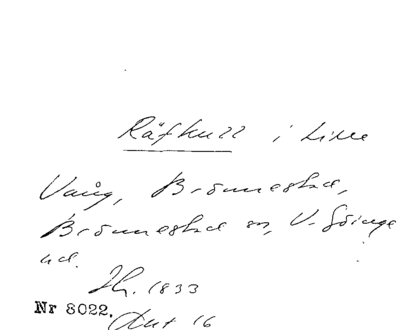 Räfkull i Lille
Vång, Brönnestad,
Brönnestad sn, V. Göinge
hd.
Jh. 1833
Nr 8022.
Akt 16